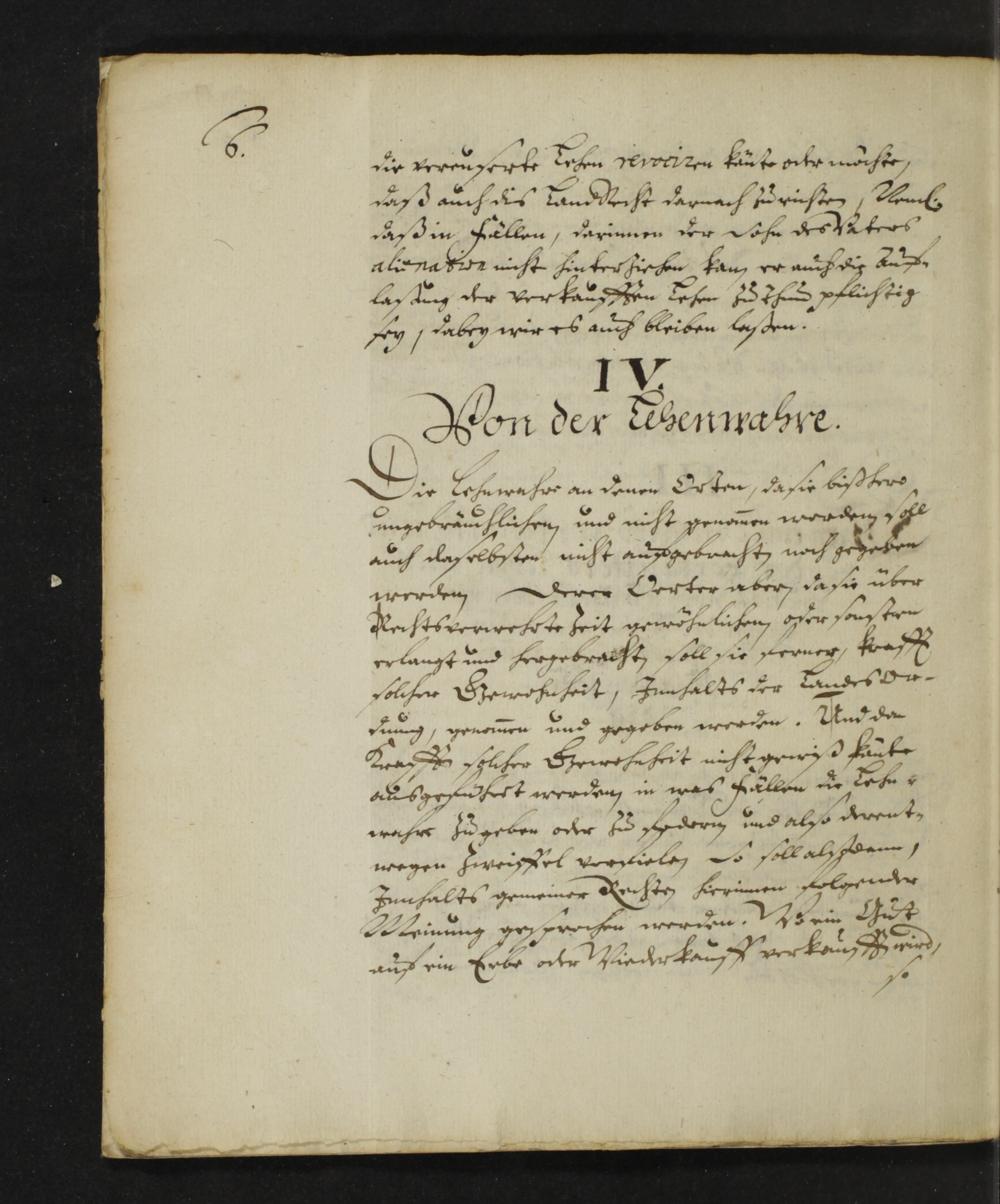 6.
die vereuserte Lehen revociren könte oder möchte,
daß auch dis LandRecht darnach zu richten, Neml.
daß in Fällen, darinnen der Sohn des Vaters
alienation nicht hinterziehen kan, er auch die Auf-
laßung der verkaufften Lehen zu thun pflichtig
sey, dabey wir es auch bleiben laßen.
IV.
Von der Lehenwahre.
Die Lehnwahre an denen Orten, da sie bißhero
ungebräuchlichen, und nicht genom̄en worden, soll
auch daselbsten nicht aufgebracht, noch gegeben
werden, Derer Oerter aber, da sie über
Rechtsverwehrte Zeit gewöhnlichen, oder sonsten
erlangt und hergebracht, soll sie ferner, krafft
solcher Gewohnheit, Innhalts der Landes Or-
dnung, genom̄en und gegeben werden. Und da
Krafft solcher Gewohnheit nicht gewiß könte
ausgeführet werden, in was Fällen die Lehn-
wahre zu geben oder zu fodern, und also derent-
wegen Zweiffel vorfielen, So soll alsdann,
Innhalts gemeiner Rechten, hierinnen folgender
Meinung gesprochen werden. Wo ein Guht
auf ein Erbe oder Wiederkauff verkaufft wird,
so